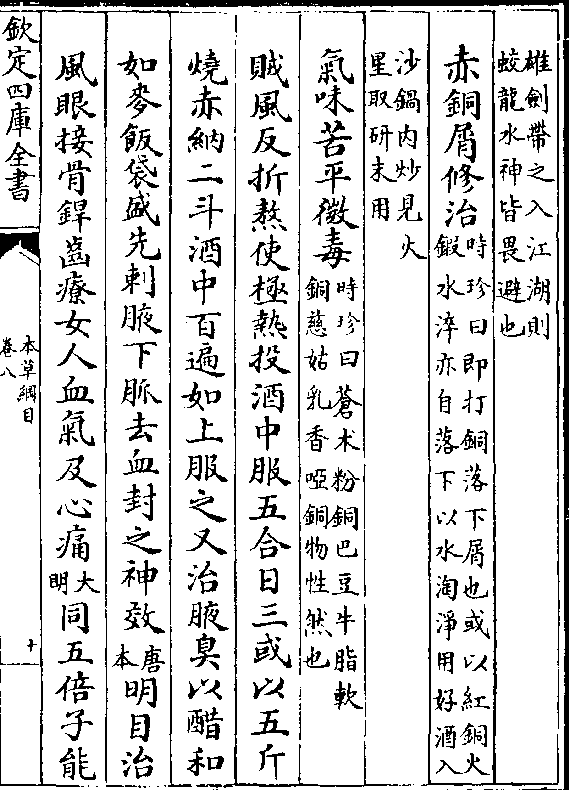 雄劍帶之入江湖則
蛟龍水神皆畏避也
赤銅屑修治
時珍曰即打銅落下屑也或以紅銅火
鍛水淬亦自落下以水淘淨用好酒入
沙鍋内炒見火
星取研末用
氣味苦平微毒
時珍曰蒼术粉銅巴豆牛脂軟
銅慈姑乳香啞銅物性然也
賊風反折熬使極熱投酒中服五合日三或以五斤
燒赤納二斗酒中百遍如上服之又治腋臭以醋和
如麥飯袋盛先刺腋下脈去血封之神效唐本明目治
風眼接骨銲齒療女人血氣及心痛大明同五倍子能
欽定四庫全書
本草綱目
卷八
十